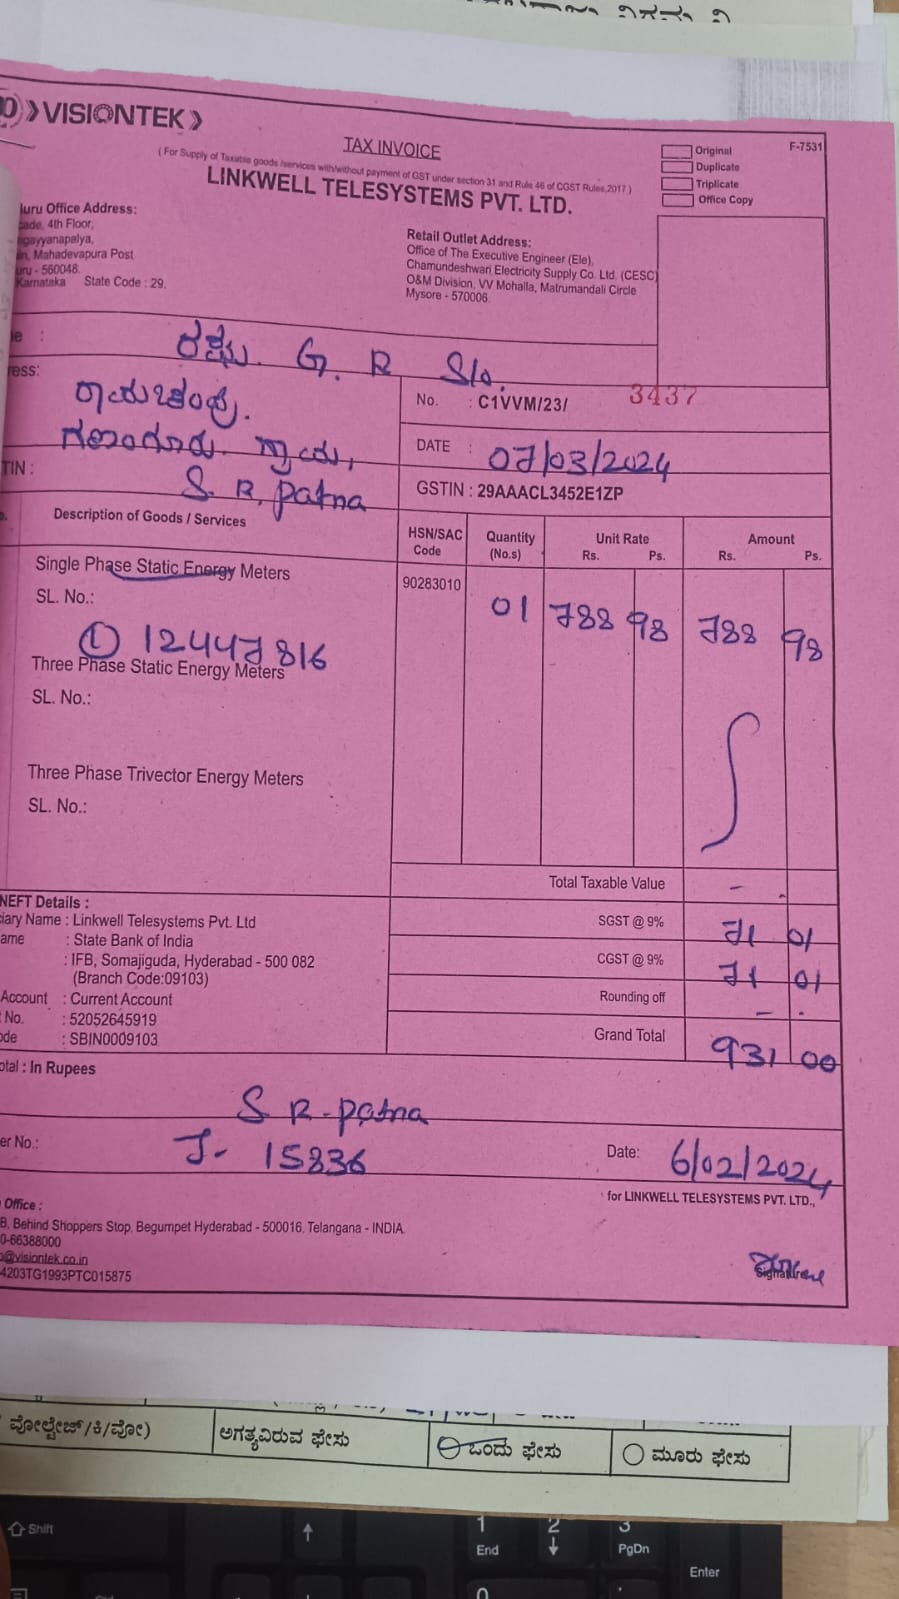 VISIONTEK
TAX INVOICE
( For Supply of Taxable goods /services with/without payment of GST under section 31 and Rule 46 of CGST Rules,2017 )
LINKWELL TELESYSTEMS PVT. LTD.
F-7531
Original
Duplicate
Triplicate
Office Copy
luru Office Address:
cade, 4th Floor,
ngayyanapalya,
in, Mahadevapura Post
uru - 560048.
Karnataka State Code : 29.
Retail Outlet Address:
Office of The Executive Engineer (Ele),
Chamundeshwari Electricity Supply Co. Ltd. (CESC)
O&M Division, VV Mohalla, Matrumandali Circle
Mysore - 570006
e : G. R S/o.
ress:
S. R. Patna
TIN :
No. : C1VVM/23/ 3437
DATE : 07/03/2024
GSTIN : 29AAACL3452E1ZP
Description of Goods / Services HSN/SAC Code Quantity (No.s) Unit Rate Rs. Ps. Amount Rs. Ps.
Single Phase Static Energy Meters 90283010 01 788 98 788 98
SL. No.:
① 12447816
Three Phase Static Energy Meters
SL. No.:
Three Phase Trivector Energy Meters
SL. No.:
Total Taxable Value - -
SGST @ 9% 71 01
CGST @ 9% 71 01
Rounding off - -
Grand Total 931 00
NEFT Details :
ciary Name : Linkwell Telesystems Pvt. Ltd
ame : State Bank of India
: IFB, Somajiguda, Hyderabad - 500 082
(Branch Code:09103)
Account : Current Account
No. : 52052645919
ode : SBIN0009103
otal : In Rupees
S R - Patna
er No.: J- 15836
Date: 6/02/2024
for LINKWELL TELESYSTEMS PVT. LTD.,
Office :
B, Behind Shoppers Stop, Begumpet Hyderabad - 500016, Telangana - INDIA.
0-66388000
@visiontek.co.in
4203TG1993PTC015875
Signature
ವೋಲ್ಟೇಜ್/ಕಿ/ವೋ) ಅಗತ್ಯವಿರುವ ಫೇಸು ಒಂದು ಫೇಸು ಮೂರು ಫೇಸು
Shift
↑
1 End
2 ↓
3 PgDn
Enter
0